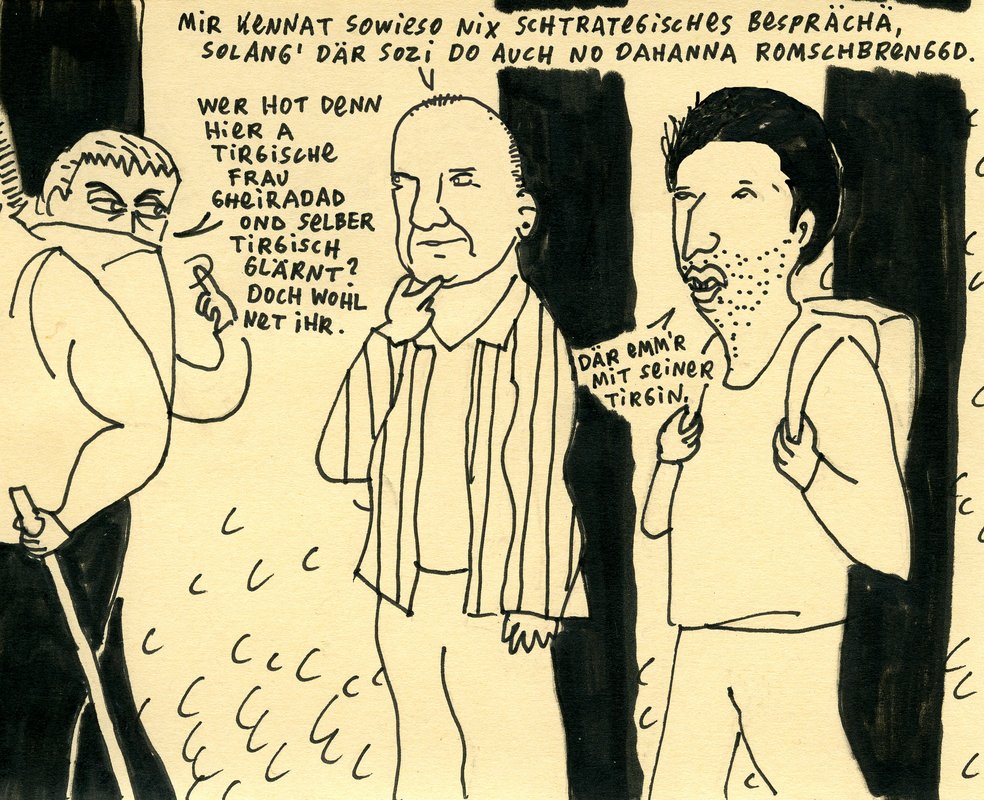 MIR KENNAT SOWIESO NIX SCHTRATEGISCHES BESPRÄCHÄ,
SOLANG' DÄR SOZI DO AUCH NO DAHANNA ROMSCHBRENGGD.
WER HOT DENN
HIER A
TIRGISCHE
FRAU
GHEIRADAD
OND SELBER
TIRGISCH
GLÄRNT?
DOCH WOHL
NET IHR.
DÄR EMM'R
MIT SEINER
TIRGIN.